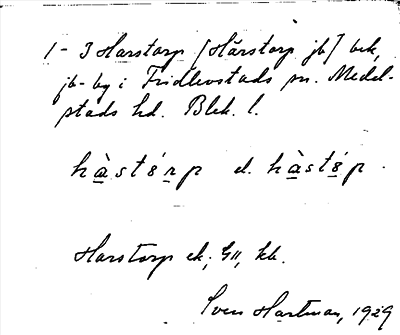 1-3 Harstorp [Hårstorp jb] bek,
jb-by i Fridlevstads sn. Medel-
stads hd. Blek. l.
hàstórp el. hàstóp.
Harstorp ek; GII, kk.
Sven Hartman, 1929